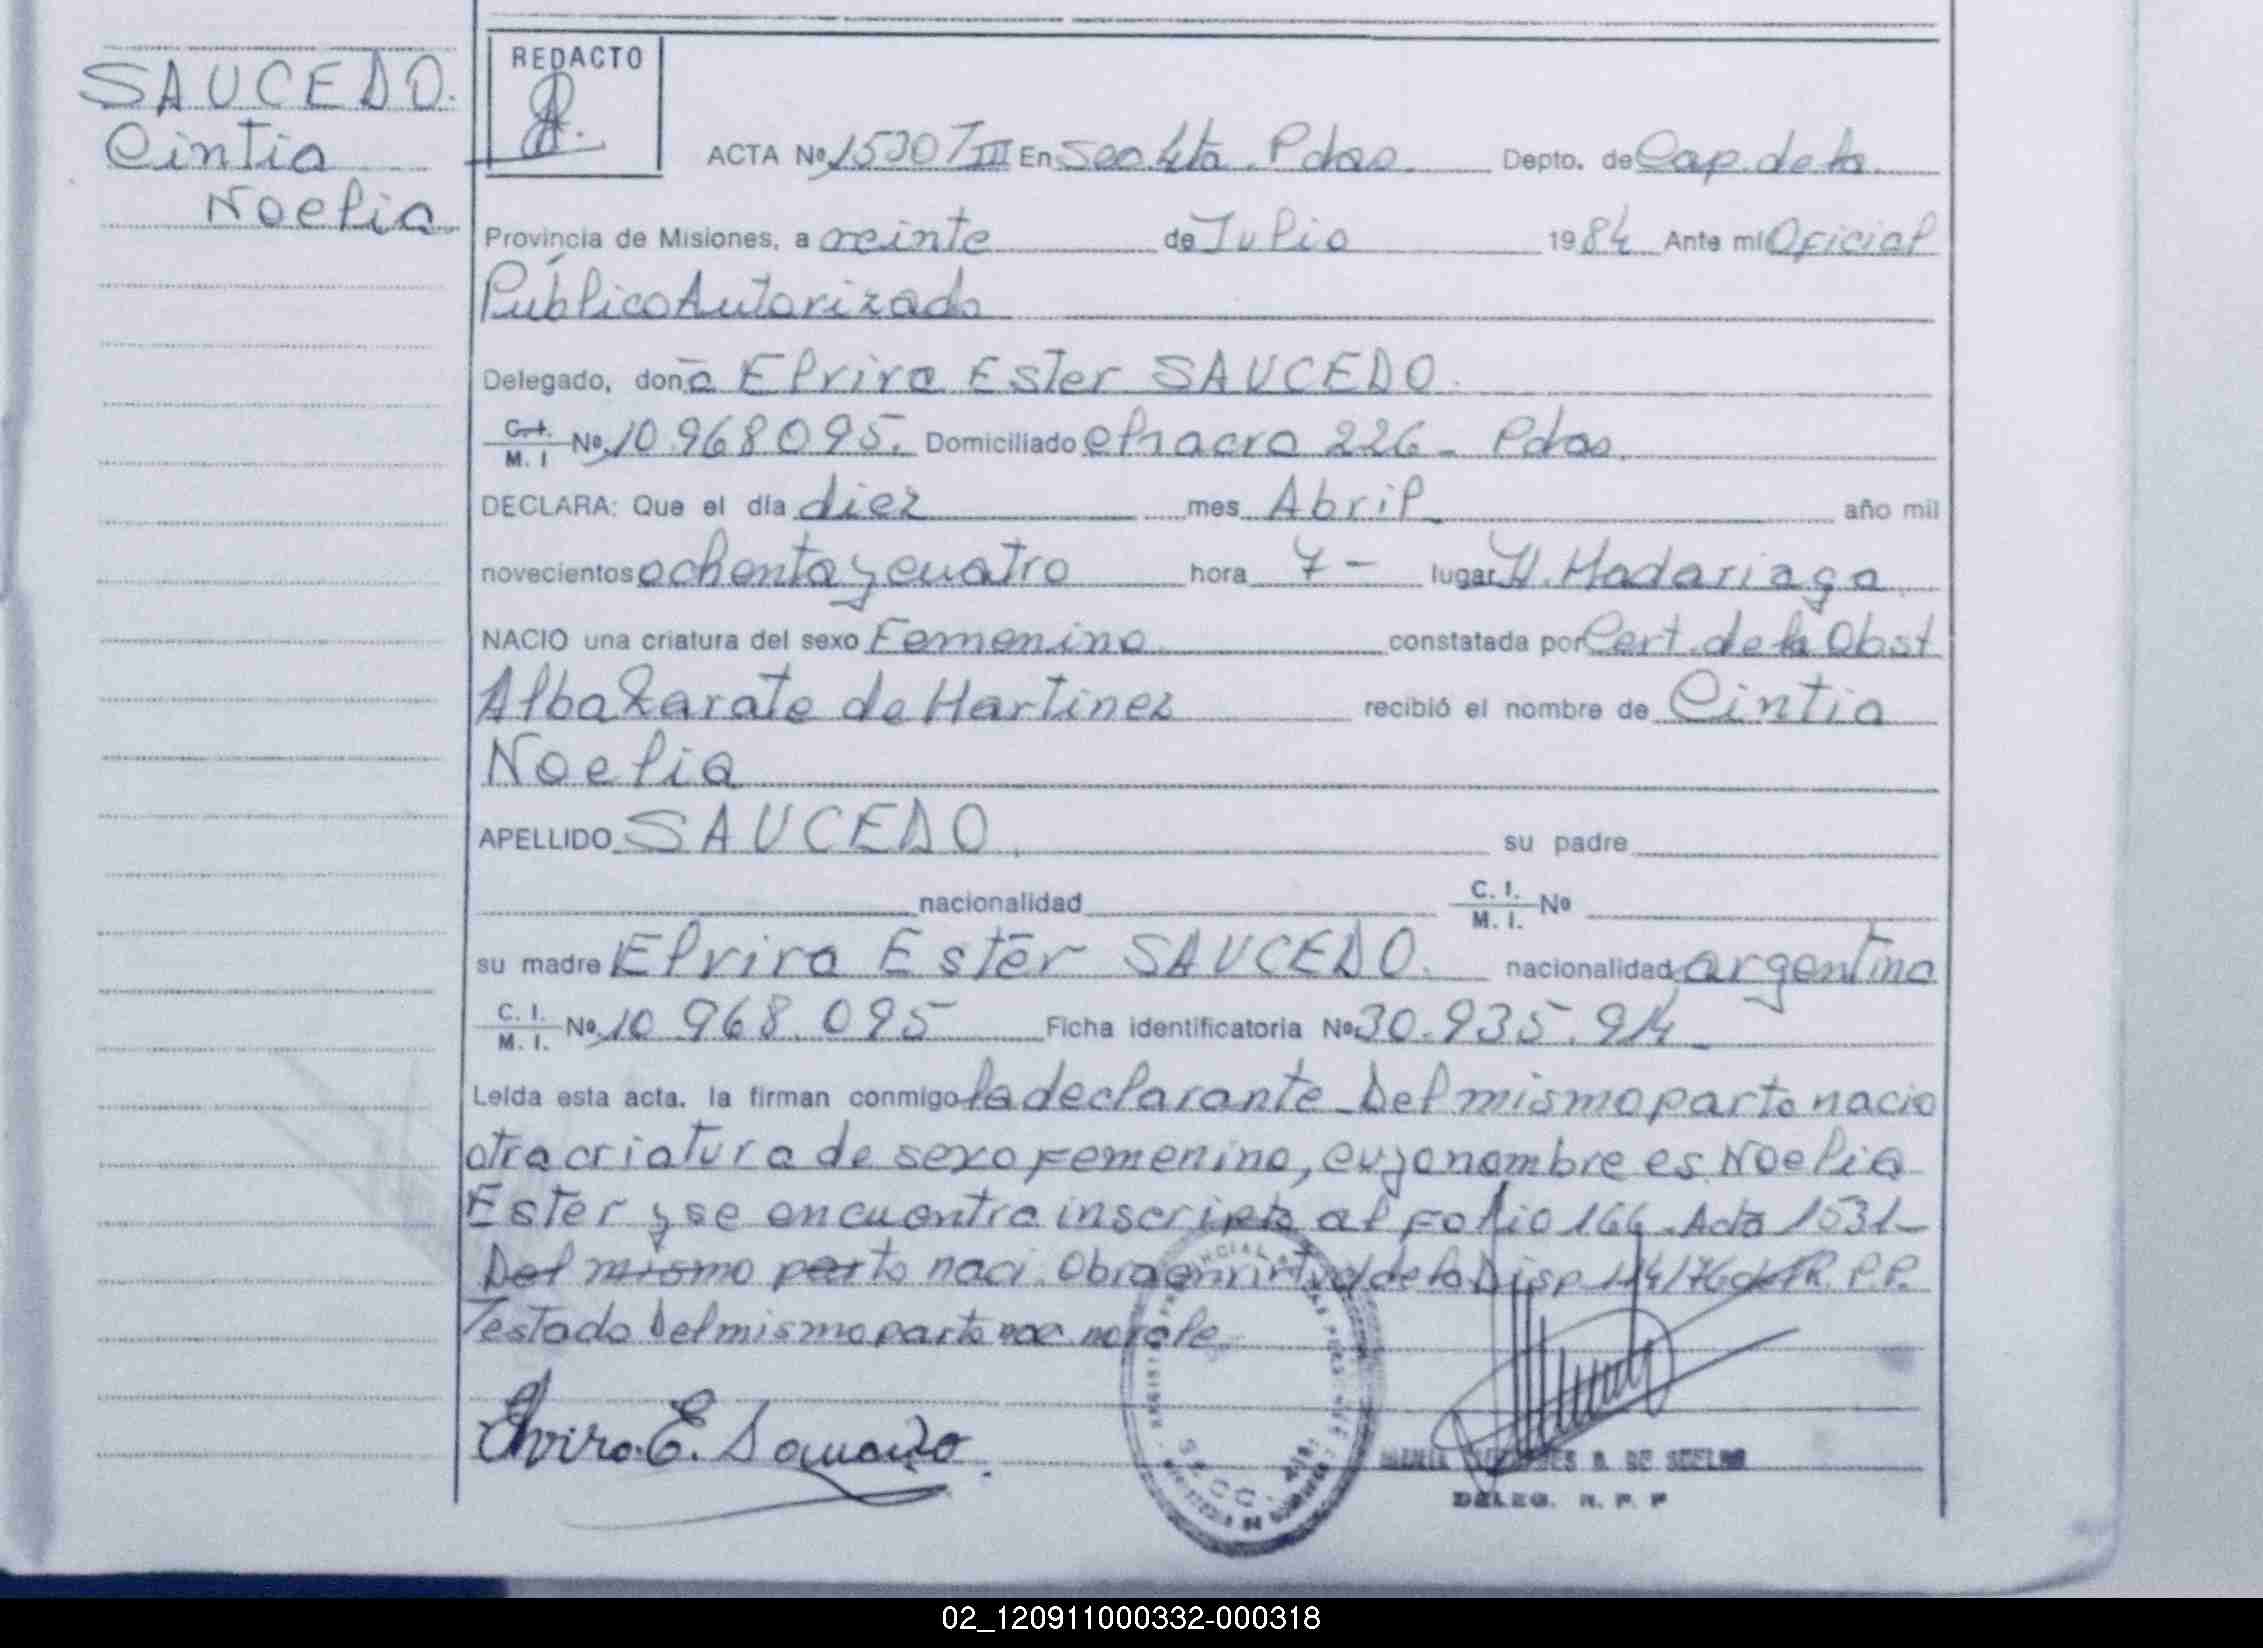 SAUCEDO.
Cintia
Noelia
REDACTO
ACTA Nº 1530 T III En Secc. 4ta. Pdas. Depto. de Cap. de la
Provincia de Misiones, a veinte de Julio 1984 Ante mi Oficial
Público Autorizado
Delegado, doña Elvira Ester SAUCEDO.
C. I. M. I Nº 10.968.095. Domiciliado chacra 226 - Pdas.
DECLARA: Que el día diez mes Abril año mil
novecientos ochenta y cuatro hora 7 - lugar H. Madariaga
NACIO una criatura del sexo Femenino constatada por Cert. de la Obst
Alba Zarate de Martinez recibió el nombre de Cintia
Noelia
APELLIDO SAUCEDO su padre
nacionalidad C. I. M. I. Nº
su madre Elvira Ester SAUCEDO. nacionalidad argentina
C. I. M. I. Nº 10.968.095 Ficha identificatoria Nº 30.935.914
Leida esta acta. la firman conmigo la declarante. Del mismo parto nacio
otra criatura de sexo Femenino, cuyo nombre es Noelia
Ester y se encuentra inscripta al Folio 166. Acta 1531-
Del mismo parto naci. Obra en virtud de la Disp. 114/76 del R. P. P.
Testado Del mismo parto nac no vale
Elvira E. Saucedo
SECC. 4ta.
DELEG. R. P. P
02_120911000332-000318